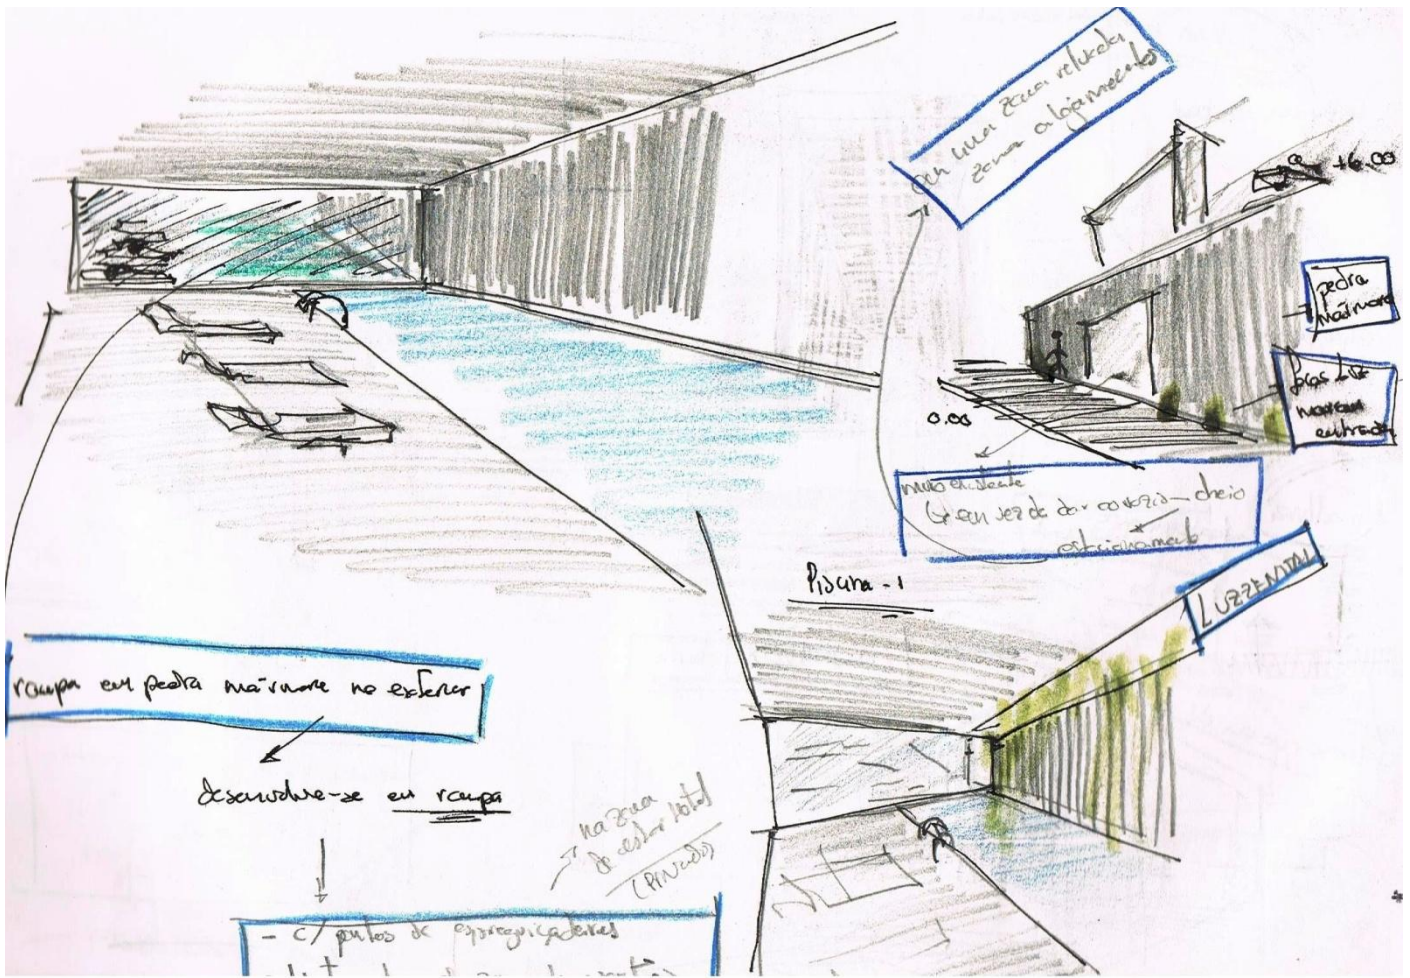 ou uma zona relvada
zona alojamentos
+6.00
pedra
mármore
focos luz
marcam
entrada
0.00
muro existente
em vez de dar ao vazio - cheio
estacionamento
Piscina - 1
LUZ ZENITAL
rampa em pedra mármore no exterior
desenvolve-se em rampa
na zona
de estar hotel
(PRIVADO)
- c/ pontos de espreguiçadeiras